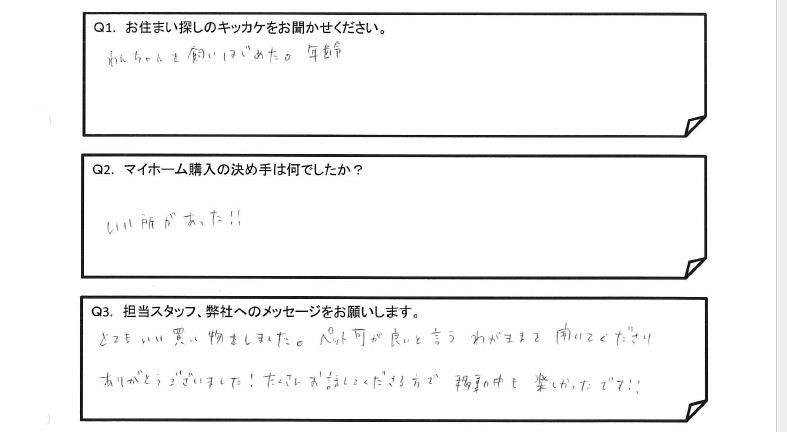 Q1. お住まい探しのキッカケをお聞かせください。
わんちゃんを飼いはじめた。年齢
Q2. マイホーム購入の決め手は何でしたか？
いい所があった!!
Q3. 担当スタッフ、弊社へのメッセージをお願いします。
とてもいい買い物をしました。ペット可が良いと言うわがままを聞いてくださり
ありがとうございました！たくさんお話してくださる方で移動中も楽しかったです!!